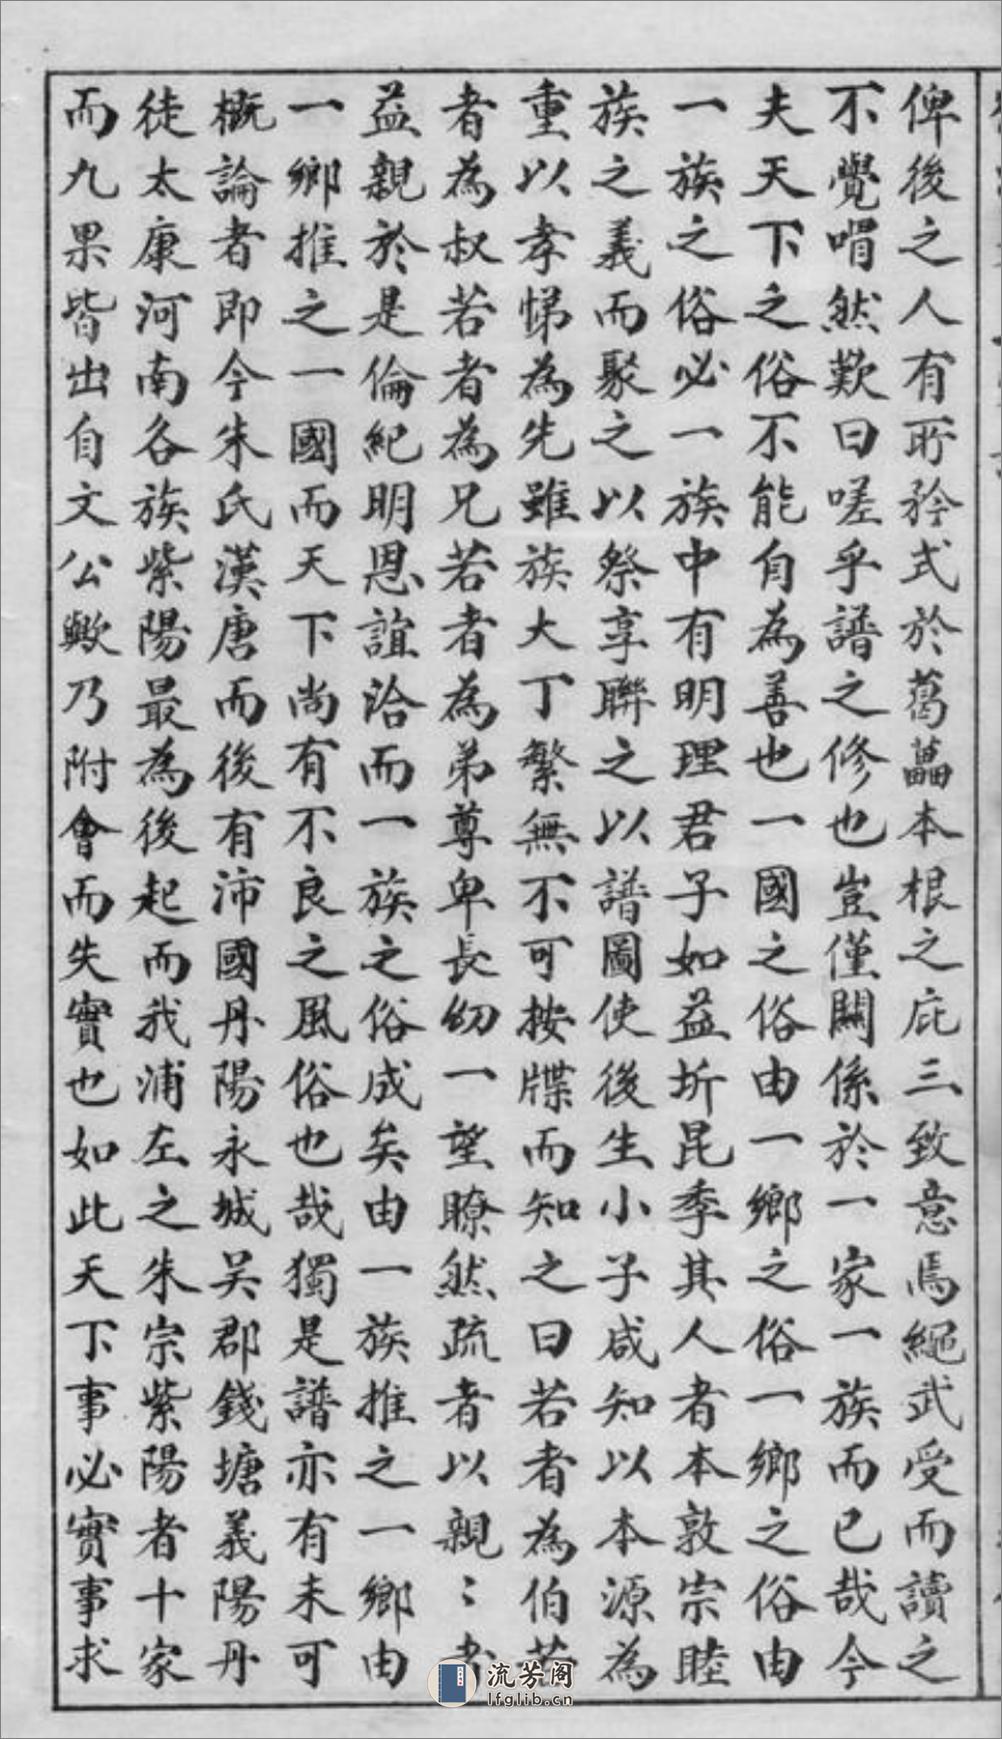 俾後之人有所矜式於葛藟本根之庇三致意焉繩武受而讀之
不覺喟然歎曰嗟乎譜之修也豈僅關係於一家一族而已哉今
夫天下之俗不能自為善也一國之俗由一鄉之俗一鄉之俗由
一族之俗必一族中有明理君子如益圻昆季其人者本敦宗睦
族之義而聚之以祭享聯之以譜圖使後生小子咸知以本源為
重以孝悌為先雖族大丁繁無不可按牒而知之曰若者為伯若
者為叔若者為兄若者為弟尊卑長幼一望瞭然疏者以親〻者
益親於是倫紀明恩誼洽而一族之俗成矣由一族推之一鄉由
一鄉推之一國而天下尚有不良之風俗也哉獨是譜亦有未可
概論者即今朱氏漢唐而後有沛國丹陽永城吳郡錢塘義陽丹
徒太康河南各族紫陽最為後起而我浦左之朱宗紫陽者十家
而九果皆出自文公歟乃附會而失實也如此天下事必實事求
流芳阁
lfglib.cn